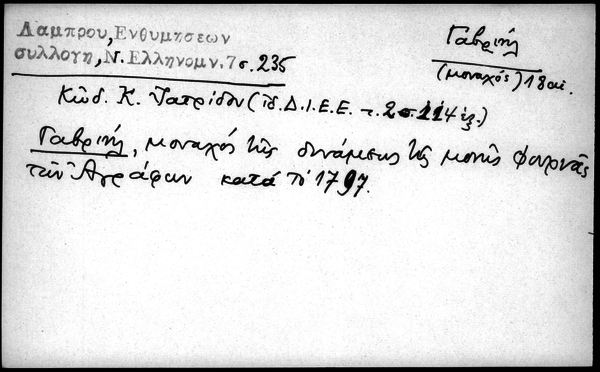 Λάμπρου, Ενθυμήσεων
συλλογή, Ν. Ελληνομν. 7 σ. 235
Γαβριήλ
(μοναχός) 18 αἰ.
Κῶδ. Κ. (ἰδ. Δ.Ι.Ε.Ε. τ. 2 σ. 114 ἑξ.)
Γαβριήλ, μοναχός τῆς δυνάμεως τῆς μονῆς Φουρνᾶς
τῶν Ἀγράφων κατά τό 1797.